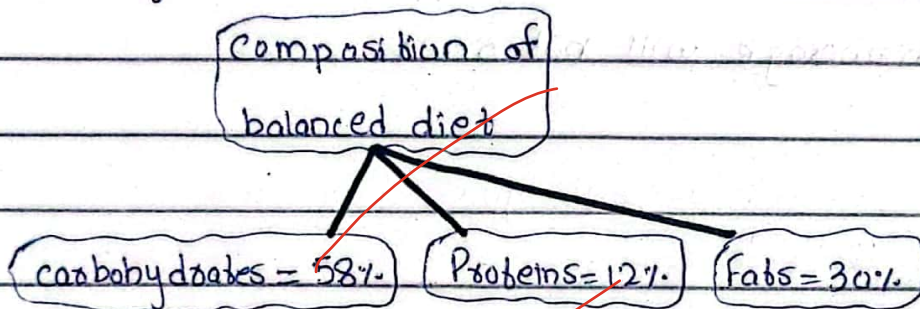 Composition of
balanced diet
carbohydrates = 58%.
Proteins = 12%.
Fats = 30%.